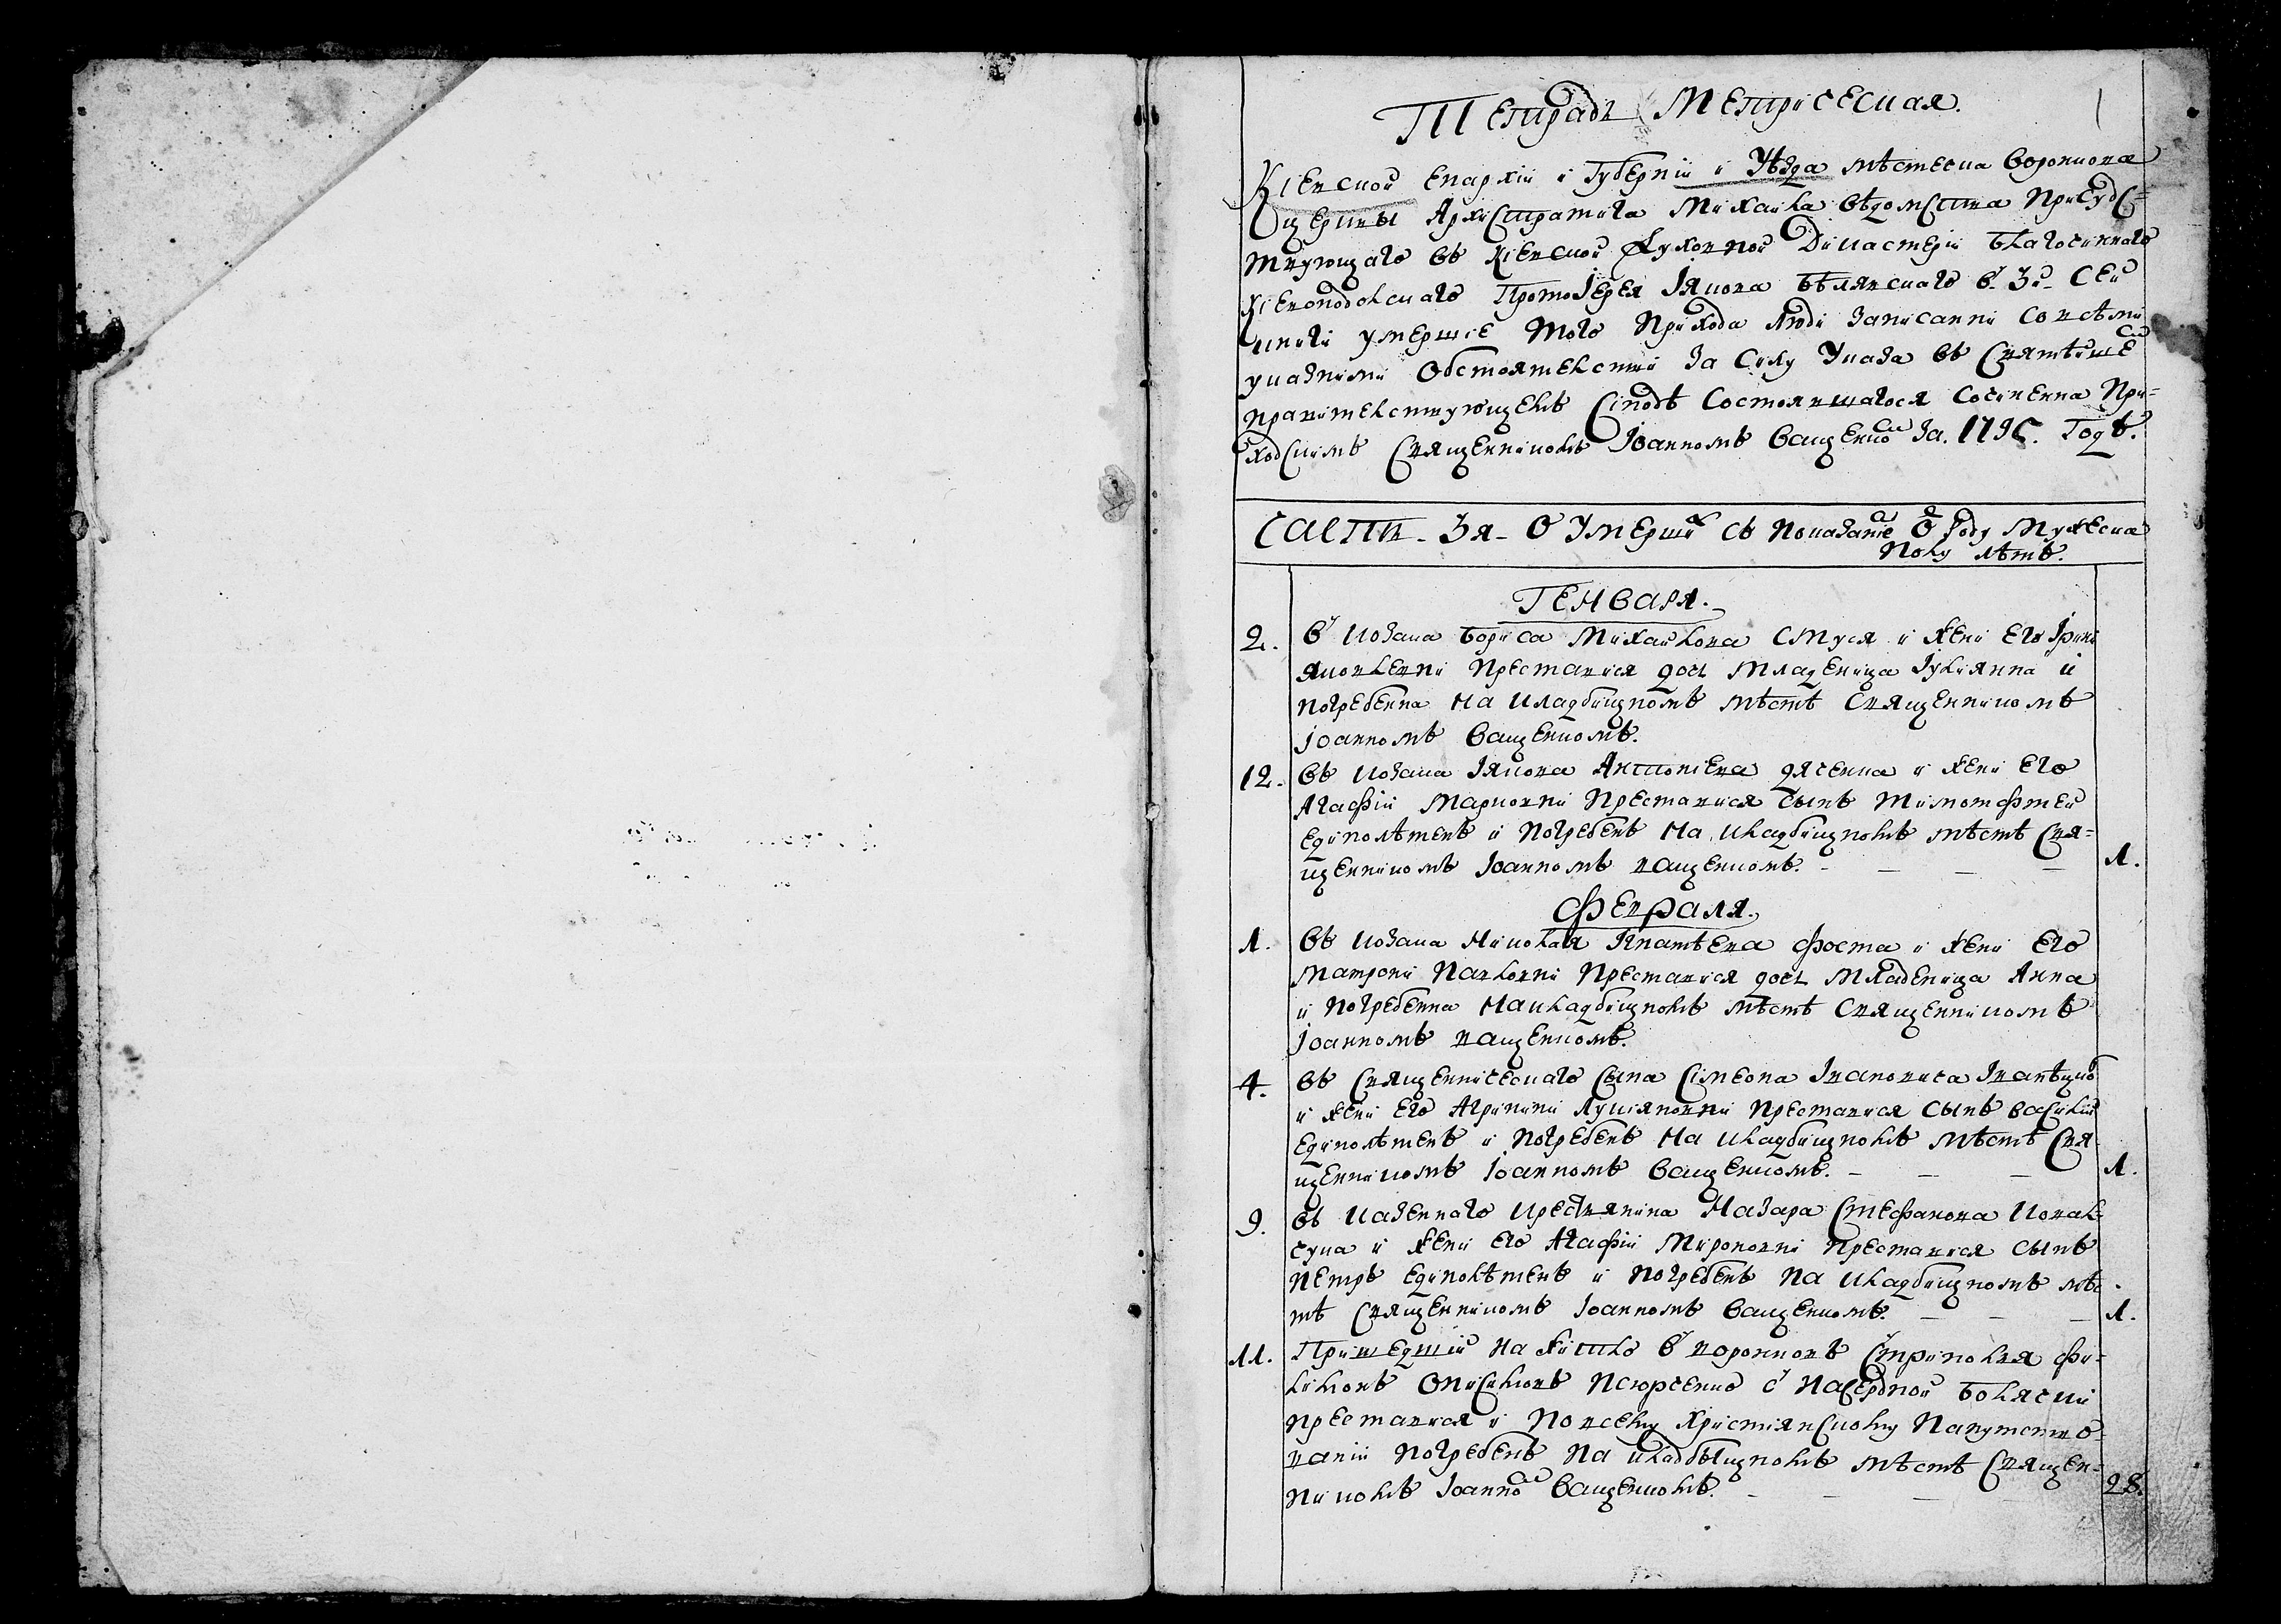 Тетрадь Метрическая.
Кіевской епархіи и Губерніи и Уѣзда мѣстечка Воронкова
церкви Архистратига Михаила вѣдомства Присудс=
твующаго въ Кіевской Духовной Дикастеріи благочиннаго
Кіевоподолскаго Протоіерея Іякова бѣлявскаго в 3й Сей
книги умершіе того Прихода люди записанни Со всѣми
указними Обстоятелстви За Силу Указа въ Святѣйше
правителствующемъ Сінодѣ Состоявшагося Сочиненна При=
ходскимъ Священникомъ Іоанномъ Ващенко За 179. Годъ.
Часть 3я О Умерших Съ Показаніе О Роду Мужеска
Полу лѣтъ.
Генваря.
2. В козака бориса Михайлова Смуся и жени его Ірини
яковлевни Преставися дочь Младеница Іулиянна и
погребенна На кладбищномъ мѣстѣ Священникомъ
Іоанномъ Ващенкомъ.
12. Въ козака Іякова Антониева дяченка и жени его
Агафіи Марковни Преставися Сынъ Тимотфтей
единолѣтенъ и Погребенъ На кладбищномъ мѣстѣ Свя=
щенникомъ Іоанномъ ващенкомъ. 1.
Февраля.
1. Въ козака Николая Игнатѣева фоста и жени Его
Матрони Павловни Преставися дочь Младеница Анна
и Погребенна На кладбищномъ мѣстѣ Священникомъ
Іоанномъ ващенкомъ.
4. Въ Священническаго Сына Сімеона Ивановича Иваницко
и жени Его Агрипини Лукіяновни Преставися Сынъ Василий
единолѣтенъ и Погребенъ На кладбищномъ мѣстѣ Свя
щенникомъ Іоанномъ Ващенкомъ. 1.
9. Въ казеннаго крестянина Назара Стефанова Ковал
чука и жени Его Агафіи Мироновни Преставися Сынъ
Петръ единолѣтенъ и Погребенъ На кладбищномъ мѣс
тѣ Священникомъ Іоанномъ Ващенкомъ. 1.
11. Пришедшій на житло в воронковъ Фи=
лимонъ с насердной болячки
преставися и По всему Христіянскому Напутство=
ванію Погребенъ На кладбищномъ мѣстѣ Священ=
никомъ Іоанно Ващенкомъ. 28.